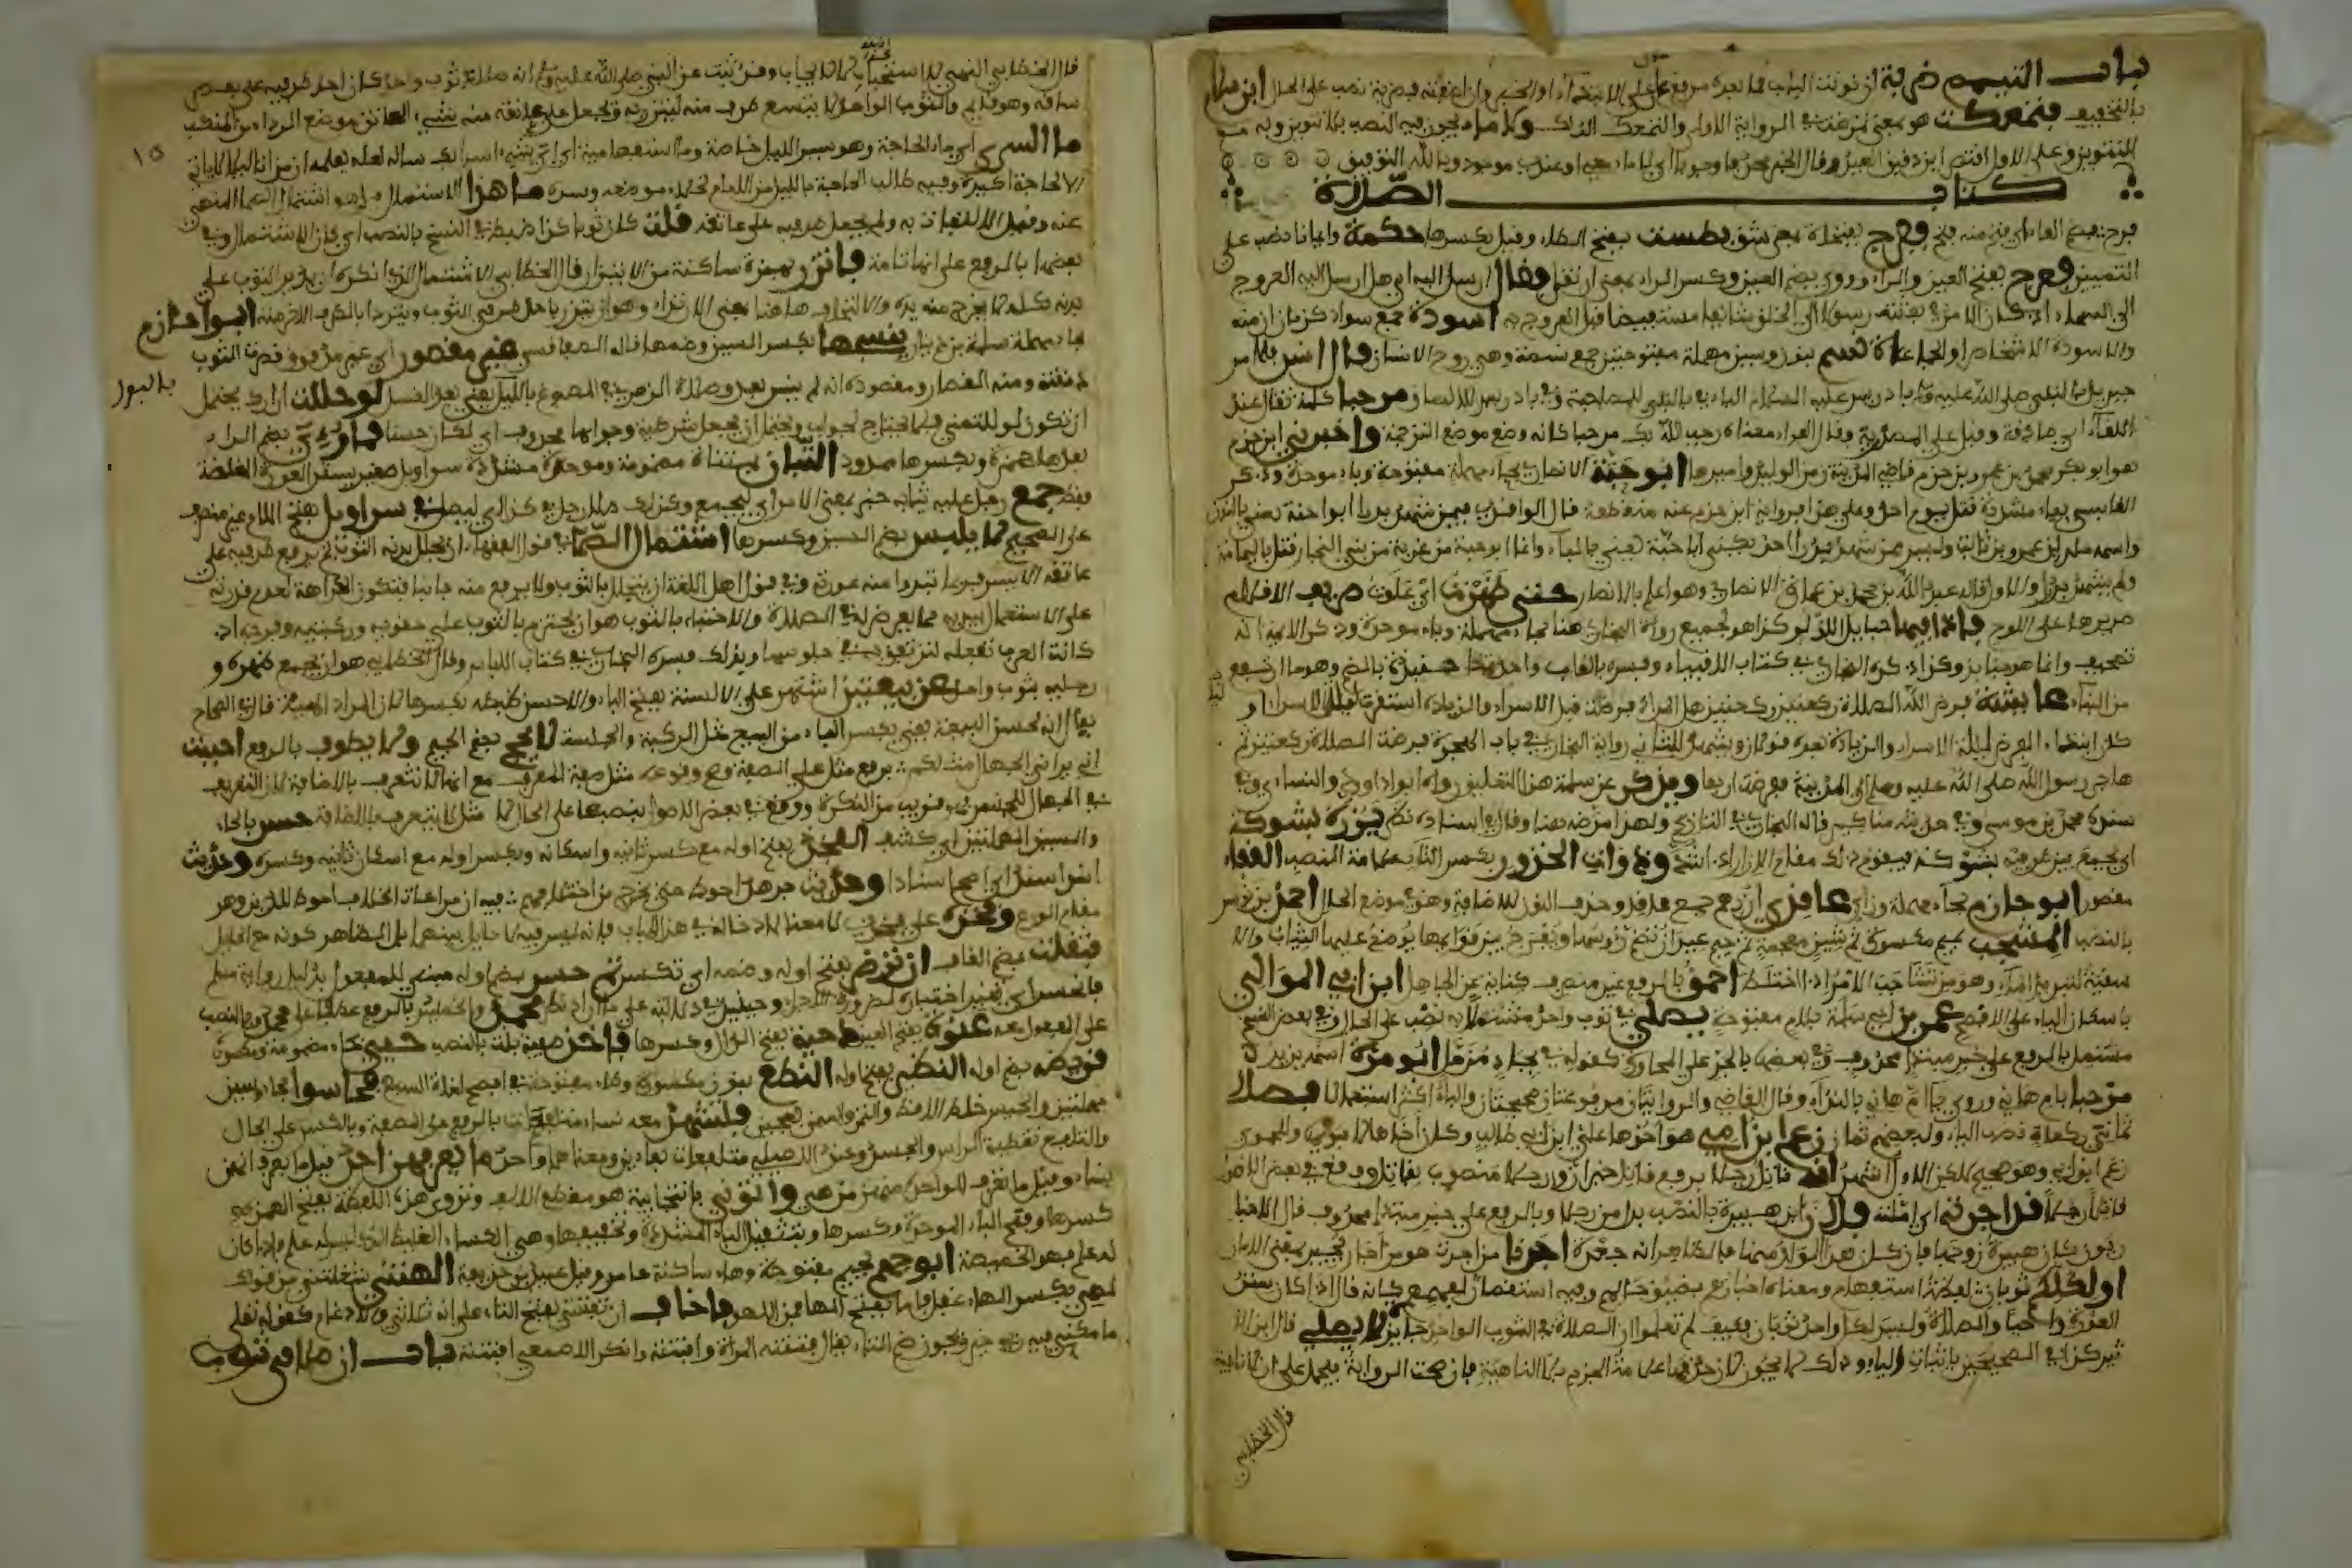 باب التيمم ضربة إن نونت الباب فما بعده مرفوع على الابتداء والخبر وإن أضفته فضربة نصب على الحال ابن سلام
بالتخفيف فتمعكت هو بمعنى تمرغت في الرواية الأولى والتمعك الدلك ولا ماء يجوز فيه النصب بلا تنوين وبه مع
التنوين وعلى الأول اقتصر ابن دقيق العيد وقال الخبر محذوف وجوبا أي لا ماء معي أو عندي موجود وبالله التوفيق
كتاب الصلاة
فرج بضم الفاء أي فتح منه فتح ففرج بفتحات بمعنى شق بطست بفتح الطاء وقيل بكسرها حكمة وإيمانا نصب على
التمييز فعرج بفتح العين والراء وروي بضم العين وكسر الراء بمعنى وقال أرسل إليه أي هل أرسل إليه للعروج
إلى السماء إذ كان الأمر في بعثته رسولا إلى الخلق شائعا مستفيضا قبل العروج به أسودة جمع سواد كزمان أزمنة
والأسودة الأشخاص والجماعات نسم بنون وسين مهملة مفتوحتين جمع نسمة وهي روح الإنسان قال أنس فلما مر
جبريل بالنبي صلى الله عليه وسلم بإدريس عليه السلام الباء في بالنبي للمصاحبة وفي بإدريس للإلصاق مرحبا كلمة تقال عند
اللقاء أي صادفت وقيل على المصدرية وقال الفراء معناه رحب الله بك مرحبا كأنه وضع موضع الترحيب وأخبرني ابن حزم
هو أبو بكر محمد بن عمرو بن حزم قاضي المدينة زمن الوليد وأميرها أبو حبة الأنصاري بحاء مهملة مفتوحة وباء موحدة وذكر
القابسي بياء مشددة قتل يوم أحد وعلى هذا فرواية ابن حزم عنه منقطعة قال الواقدي فيمن شهد بدرا أبو حنة يعني بالنون
واسمه مالك بن عمرو بن ثابت وليس ممن شهد بدرا أحد يكنى أبا حبة يعني بالباء وإنما أبو حبة من غزية من بني النجار قتل باليمامة
ولم يشهد بدرا والأول قاله عبد الله بن محمد بن عمارة الأنصاري وهو أعلم بالأنصار حتى ظهرت أي علوت صريف الأقلام
صريرها على اللوح فإذا فيها حبايل اللؤلؤ كذا هو لجميع رواة البخاري هنا بحاء مهملة وباء موحدة وذكر الأئمة أنه
تصحيف وإنما هو جنابذ وكذا ذكره البخاري في كتاب الأنبياء وفسره بالقباب واحدتها جنبذة بالضم وهو ما ارتفع
من البناء عائشة فرض الله الصلاة ركعتين ركعتين هل المراد فرضت قبل الإسراء والزيادة استقرت ليلة الإسراء أو
كان ابتداء الفرض ليلة الإسراء والزيادة بعده قولان ويشهد للثاني رواية البخاري في باب الهجرة فرضت الصلاة ركعتين ثم
هاجر رسول الله صلى الله عليه وسلم إلى المدينة ففرضت أربعا ويذكر عن سلمة هذا التعليق رواه أبو داود والنسائي وفي
سنده محمد بن موسى وفي حديثه مناكير قاله البخاري في التاريخ ولهذا مرضه هنا وقال في إسناده نظر يزره بشوكة
أي يجمع بين طرفيه بشوكة فيقوم ذلك مقام الأزرار ذوات الخدور بكسر التاء علامة النصب القفاء
مقصور أبو حازم بحاء مهملة وزاي عاقدي أزرهم جمع عاقد وحذف النون للإضافة وهو في موضع الحال أحمد بن يونس
بالنصب المشجب بميم مكسورة ثم شين معجمة ثم جيم عيدان تضم رؤوسها ويفرج بين قوائمها يوضع عليها الثياب
سقية لتبريد الماء وهو من تشاجب الأمر إذا اختلط أحمق بالرفع غير منصرف كناية عن الجاهل ابن أبي الموالي
بإسكان الياء على الأفصح عمر بن أبي سلمة بلام مفتوحة يصلي في ثوب واحد مشتملا به نصب على الحال وفي بعض النسخ
مشتمل بالرفع على خبر مبتدإ محذوف وفي بعضها بالجر على المجاورة كقوله في بجاد مزمل أبو مرة اسمه يزيد
مرحبا بأم هانئ وروي يا أم هانئ بالنداء وقال القاضي والروايتان معروفتان صحيحتان والباء أكثر استعمالا فصلى
ثماني ركعات نصب الياء ولبعضهم ثمان زعم ابن أمي هو أخوها علي ابن أبي طالب وكان أخاها لأبوين والحموي
زعم ابن أبي وهو صحيح لكن الأول أشهر أنه قاتل رجلا يرفع قاتل خبر أن ورجلا منصوب بقاتل ووقع في بعض الأصول
قاتلا رجلا قد أجرته أي أمنته فلان بن هبيرة بالنصب بدل من رجلا وبالرفع على خبر مبتدإ محذوف قال
يكون كان هبيرة زوجها فإن كان هذا الولد منها فالظاهر أنه جعدة أجرنا من أجرت هو من أجار يجير بمعنى الأمان
أولكلكم ثوبان لفظه استفهام ومعناه إخبار عن ضيق حالهم وفيه استقصار لفهمهم كأنه قال إذا كان ستر
العورة واجبا والصلاة وليس لكل واحد ثوبان فكيف لم تعلموا أن الصلاة في الثوب الواحد جائزة لا يصلي قال ابن الأثير
كذا في الصحيحين بإثبات الياء وذلك لا يجوز لأن حذفها علامة الجزم بلا الناهية فإن صحت الرواية فيحمل على أن لا نافية
قال الخطابي
قال الخطابي النهي للاستحباب لا للإيجاب وقد ثبت عن النبي صلى الله عليه وسلم أنه صلى في ثوب واحد كان أحد طرفيه على بعض
نسائه وهو نائم والثوب الواحد لا يتسع طرف منه ليتزر به ويجعل على عاتقه منه شيء العاتق موضع الرداء من المنكب
ما السرى أي ما الحاجة وهو سير الليل خاصة وما استفهامية أي أي شيء أسرى بك سأله لعله يعلمه أن من أتاه ليلا لا يأتي
إلا لحاجة أكيدة وفيه طالب الحاجة بالليل من الإمام لخلاء موضعه وسره ما هذا الاشتمال هو اشتمال الصماء المنهي
عنه وقيل الالتفات به ولم يجعل طرفيه على عاتقه قلت كان ثوبا كذا ضبط في النسخ بالنصب أي كان الاشتمال وفي
بعضها بالرفع على أنها تامة فاتزر بهمزة ساكنة من الاتزار قال الخطابي الاشتمال الذي أنكره أن يدير الثوب على
بدنه كله لا يخرج منه يده والالتحاف هاهنا بمعنى الارتداء وهو أن يتزر بأحد طرفي الثوب ويرتدي بالطرف الآخر منه أبو حازم
بحاء مهملة سلمة بن دينار ينسجها بكسر السين وضمها قاله الصفاقسي غير مقصور أي غير مدقوق قصرت الثوب
دققته ومنه القصار ومقصوده أنه لم يلبس بعد وصلاة الزهري في المصبوغ بالبول يعني بعد الغسل لو حللت إزارك يحتمل
أن تكون لو للتمني فلا تحتاج لجواب ويحتمل أن يجعل شرطية وجوابها محذوف أي لكان حسنا فما رؤي بضم الراء
بعدها همزة وبكسرها ممدود التبان بمثناة مضمومة وموحدة مشددة سراويل صغير يستر العورة المغلظة
فقط جمع رجل عليه ثيابه خبر بمعنى الأمر أي ليجمع وكذلك صلى رجل في كذا أي ليصل في سراويل بفتح اللام غير منصرف
على الصحيح لا يلبس بضم السين وكسرها اشتمال الصماء في قول الفقهاء أن يجلل بدنه الثوب ثم يرفع طرفيه على
عاتقه الأيسر فربما تبدوا منه عورة وفي قول أهل اللغة أن يتجلل بالثوب ولا يرفع منه جانبا فتكون الكراهة لعدم قدرته
على الاستعمال بيديه مما يعرض له في الصلاة والاحتباء بالثوب هو أن يحتزم بالثوب على حقويه وركبتيه وفرجه باد
كانت العرب تفعله لترتفق به في جلوسها وبذلك فسره البخاري في كتاب اللباس وقال الخطابي هو أن يجمع ظهره و
رجليه بثوب واحد عن بيعتين اشتهر على الألسنة بفتح الباء والأحسن ضبطه بكسرها لأن المراد الهيئة قال في الصحاح
يقال إنه لحسن البيعة يعني بكسر الباء من البيع مثل الركبة والجلسة لا يحج بضم الجيم ولا يطوف بالرفع أحببت
أن يراني الجهال مثلكم يرفع مثل على الصفة وصح وقوعه مثل صفة للمعرفة مع أنها لا تتعرف بالإضافة لأن التعريف
في الجهال للجنس فهو قريب من النكرة ووقع في بعض الأصول بنصبها على الحال لأن مثل لا يتعرف بالإضافة حسر بالحاء
والسين المهملتين أي كشف الفخذ بفتح أوله مع كسر ثانيه وإسكانه وبكسر أوله مع إسكان ثانيه وكسره وحديث
أنس أسند أي أصح إسنادا وحديث جرهد أحوط حتى يخرج من اختلافهم فيه أن مراعاة الخلاف أحوط للدين وهو
مقام الورع وفخذه على فخذي لا معنى لإدخاله في هذا الباب فإنه ليس فيه لا حايل بينهما بل الظاهر كونه مع الحايل
فثقلت بضم القاف أن ترض بفتح أوله وضمه أي تكسر ثم حسر بضم أوله مبني للمفعول بدليل رواية مسلم
فانحسر أي بغير اختياره لضرورة الإجراء وحينئذ فلا دلالة على ما أراد محمد والخميس بالرفع عطفا على محمد وبالنصب
على المفعول معه عنوة بفتح العين دحية بفتح الدال وكسرها فأخذ صفية بنت بالنصب حيي بحاء مضمومة ومكسورة
فوضعه بضم أوله النطع بفتح أوله النطع بنون مكسورة وطاء مفتوحة في أفصح لغاته السبع فحاسوا بحاء وسين
مهملتين والحيس خلط الأقط والتمر والسمن يعجن فيشهد معه نساء متلفعات بالرفع على الصفة وبالكسر على الحال
والتلفع تغطية الرأس والجسد وعند الأصيلي متلفعات بفاءين ومعناهما واحد ما يعرفهن أحد قيل ما يعرف أنهن
نساء وقيل ما تعرف الواحدة منهن من هي وائتوني بأنبجانية هو مقطع الألف وتروى هذه اللفظة بفتح الهمزة و
كسرها وبفتح الباء الموحدة وكسرها وبتثقيل الياء المشددة وتخفيفها وهي الكساء الغليظ الذي ليس له علم فإذا كان
له علم فهو الخميصة أبو جهم بجيم مفتوحة وهاء ساكنة عامر وقيل عبيد بن حذيفة ألهتني شغلتني من قولك
لهي بكسر الهاء غفل لا بفتح الهاء من اللهو فأخاف أن تفتنني بفتح التاء على أنه ثلاثي والإدغام كقوله تعالى
ما مكني فيه ربي خير ويجوز ضم التاء يقال فتنته المرأة وأفتنته وأنكر الأصمعي أفتنته باب إن صلى في ثوب
بالبول
١٥